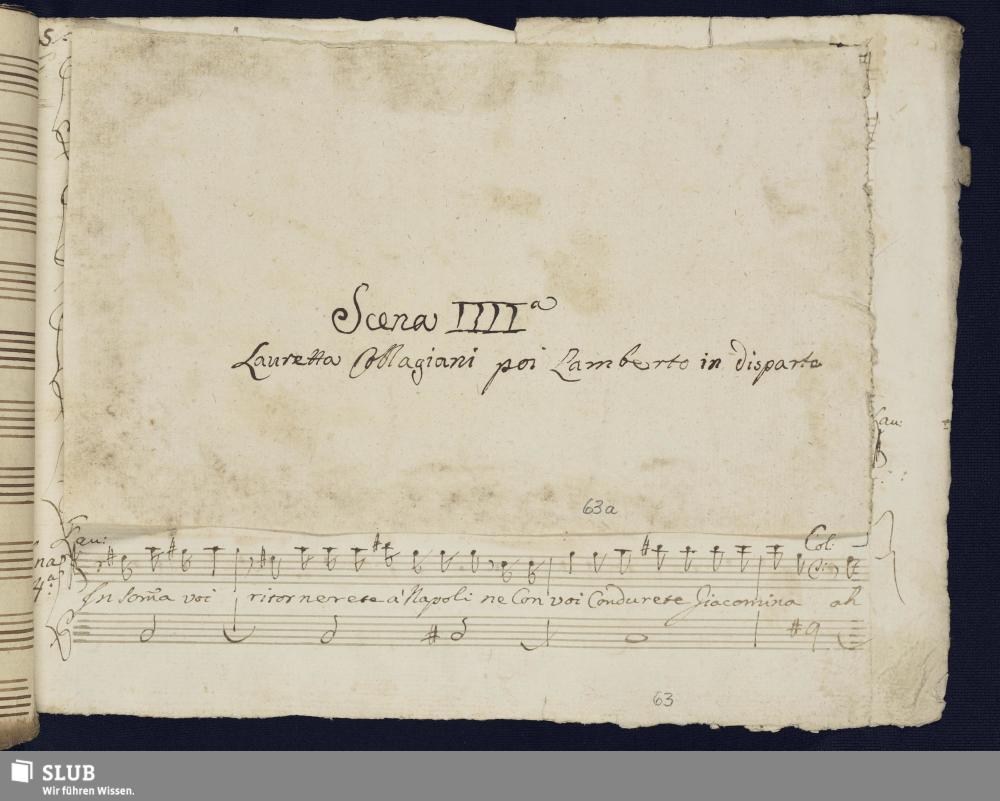 5
Scena IIIIª
Lauretta Collagiani poi Lamberto in disparte
63a
Lau:
Lau:
Col:
na
4ª
In som̃a voi ritornerete a' Napoli ne Con voi Condurete Giacomina ah
63
SLUB
Wir führen Wissen.